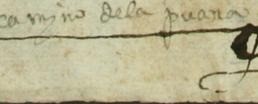 camyno dela puana